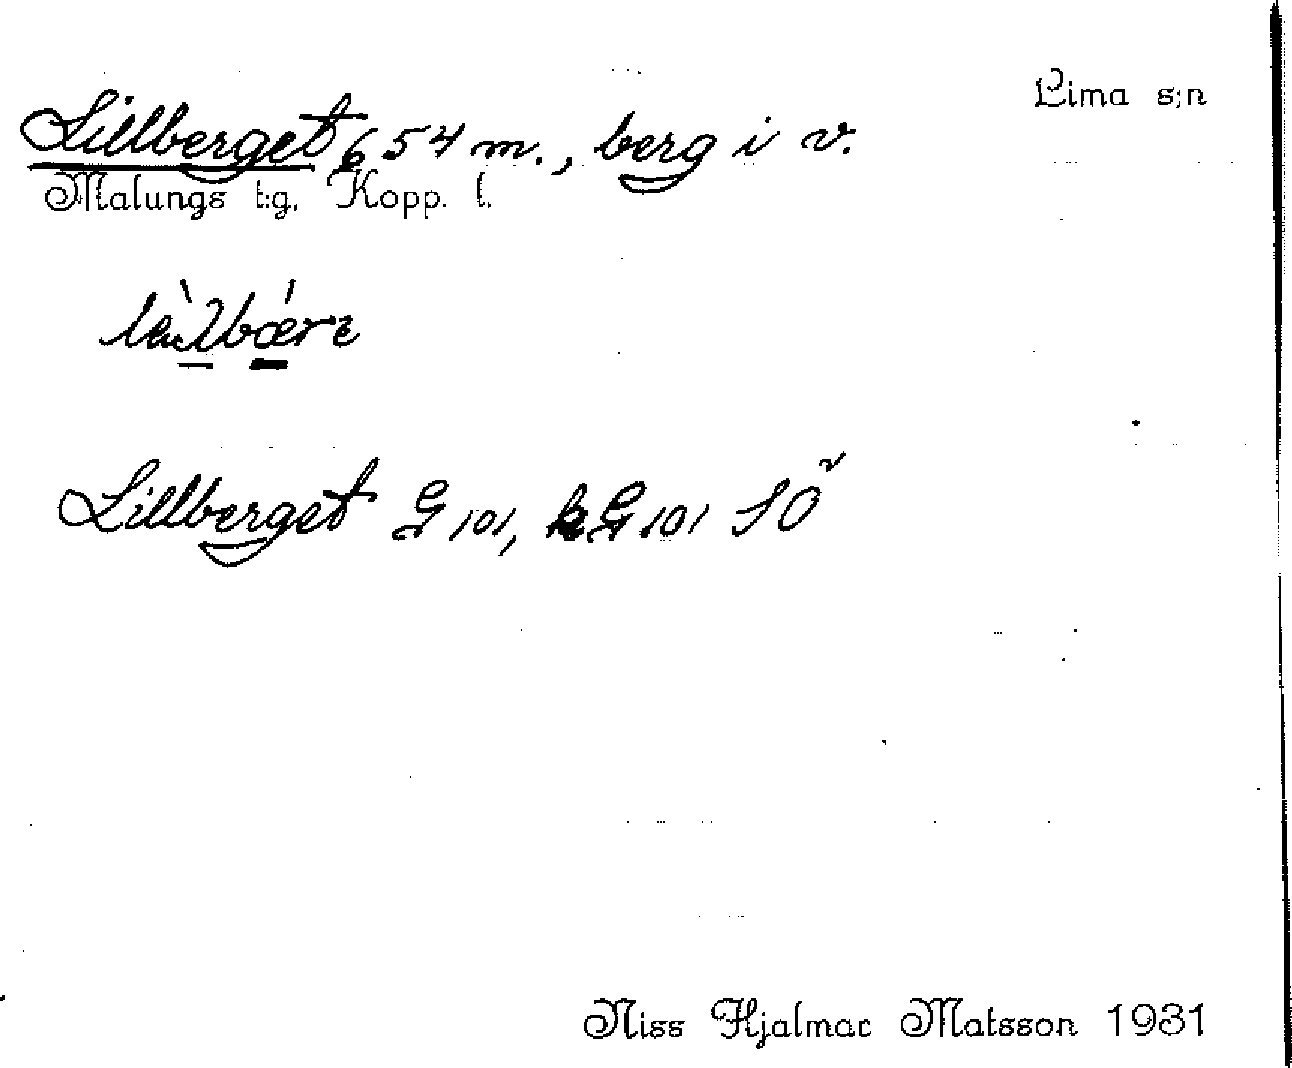 Lima s:n
Lillberget 654 m., berg i v.
Malungs t:g. Kopp. l.
Lillberget G 101, kG 101 SÖ
Niss Hjalmar Matsson 1931